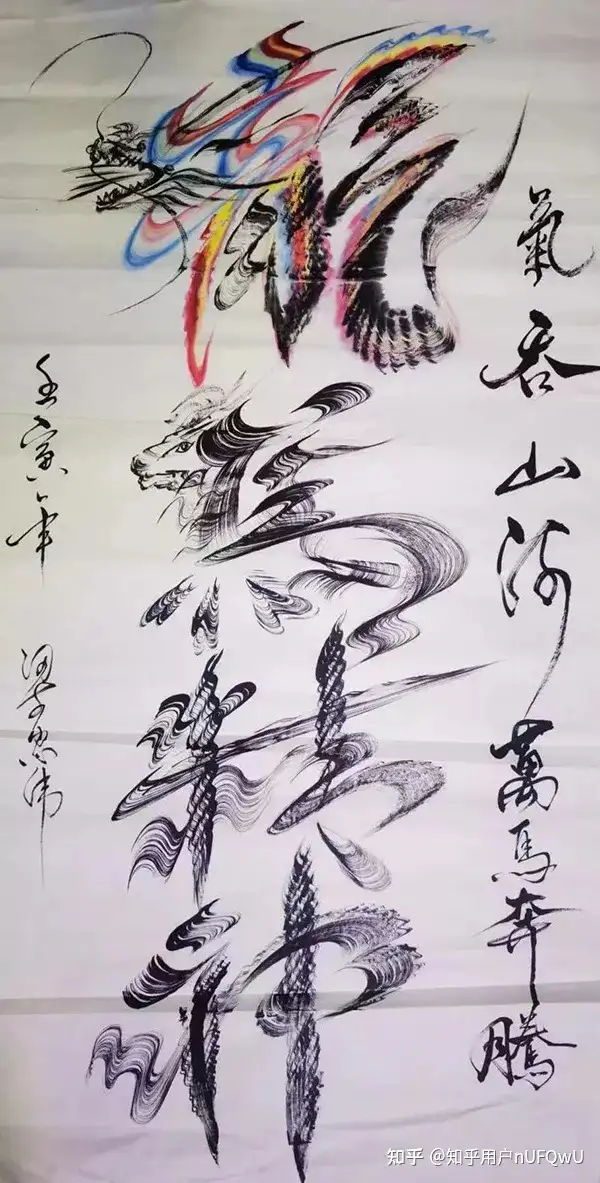 氣吞山河萬馬奔騰
龍馬精神
壬寅年
知乎 @知乎用户nUFQwU